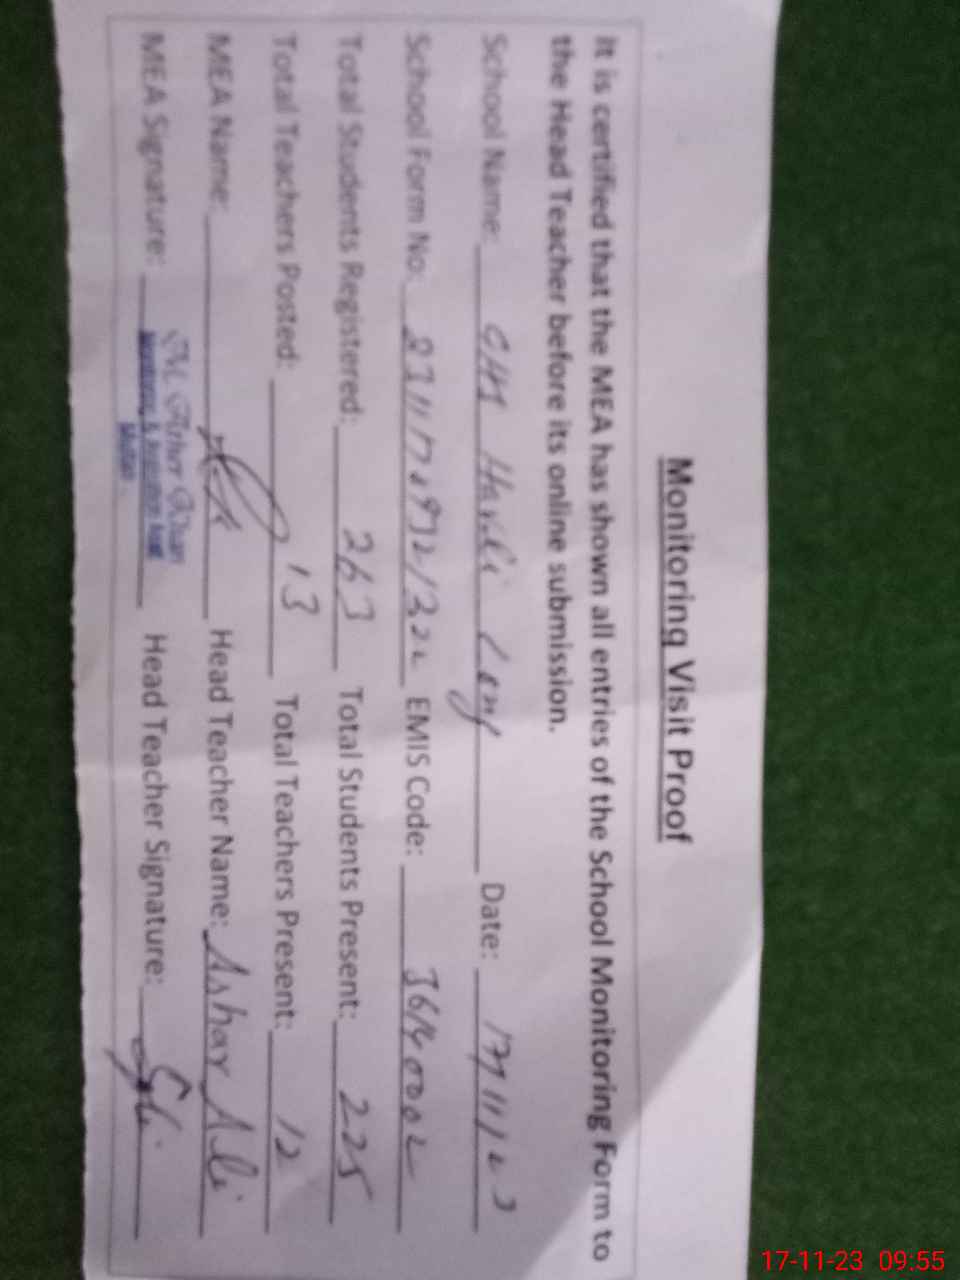 Monitoring Visit Proof
It is certified that the MEA has shown all entries of the School Monitoring Form to
the Head Teacher before its online submission.
School Name: Date: 17/11/23
School Form No: EMIS Code: 36140002
Total Students Registered: 263 Total Students Present: 225
Total Teachers Posted: 13 Total Teachers Present: 12
MEA Name: Head Teacher Name: Ashar Ali
MEA Signature: Head Teacher Signature:
17-11-23 09:55